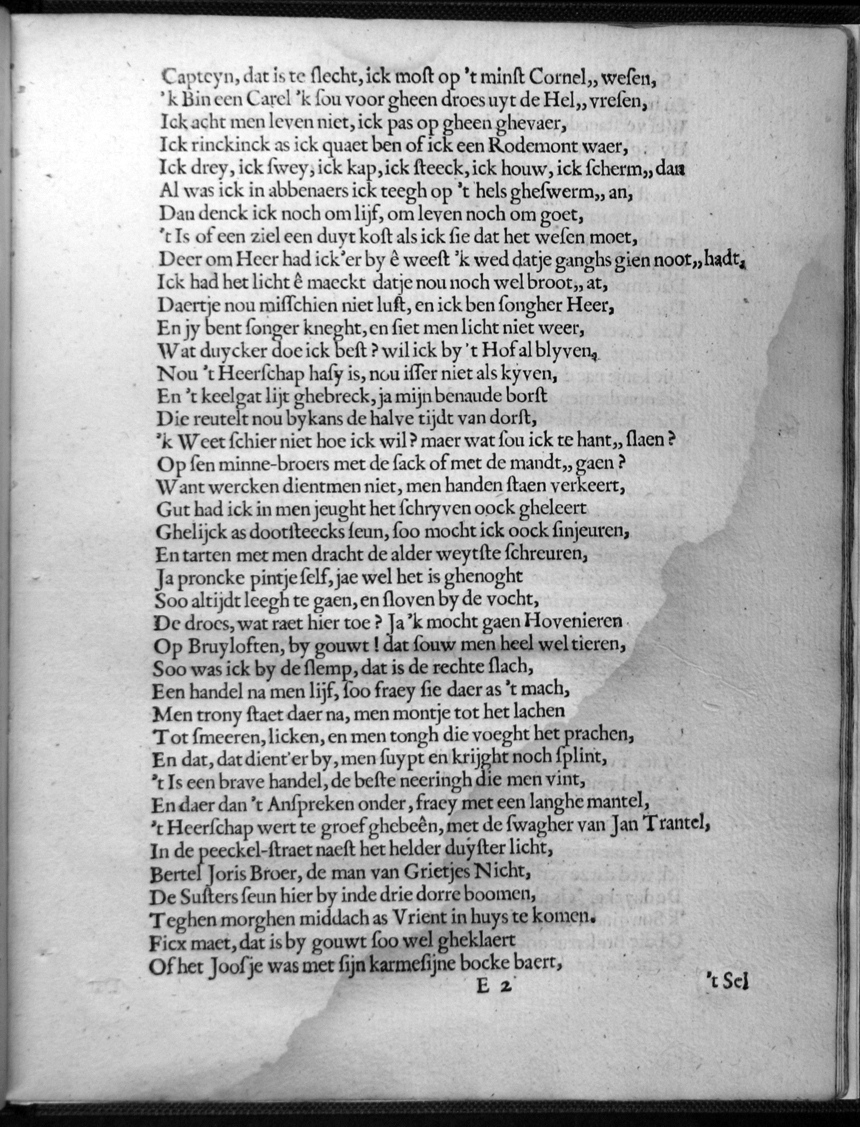 Capteyn, dat is te ſlecht, ick moſt op 't minſt Cornel,, weſen,
'k Bin een Carel 'k ſou voor gheen droes uyt de Hel,, vreſen,
Ick acht men leven niet, ick pas op gheen ghevaer,
Ick rinckinck as ick quaet ben of ick een Rodemont waer,
Ick drey, ick ſwey, ick kap, ick ſteeck, ick houw, ick ſcherm,, dan
Al was ick in abbenaers ick teegh op 't hels gheſwerm,, an,
Dan denck ick noch om lijf, om leven noch om goet,
't Is of een ziel een duyt koſt als ick ſie dat het weſen moet,
Deer om Heer had ick'er by ê weeſt 'k wed datje ganghs gien noot,, hadt,
Ick had het licht ê maeckt datje nou noch wel broot,, at,
Daertje nou miſſchien niet luſt, en ick ben ſongher Heer,
En jy bent ſonger kneght, en ſiet men licht niet weer,
Wat duycker doe ick beſt? wil ick by 't Hof al blyven,
Nou 't Heerſchap haſy is, nou iſſer niet als kyven,
En 't keelgat lijt ghebreck, ja mijn benaude borſt
Die reutelt nou bykans de halve tijdt van dorſt,
'k Weet ſchier niet hoe ick wil? maer wat ſou ick te hant,, ſlaen?
Op ſen minne-broers met de ſack of met de mandt,, gaen?
Want wercken dientmen niet, men handen ſtaen verkeert,
Gut had ick in men jeught het ſchryven oock gheleert
Ghelijck as dootſteecks ſeun, ſoo mocht ick oock ſinjeuren,
En tarten met men dracht de alder weytſte ſchreuren,
Ja proncke pintje ſelf, jae wel het is ghenoght
Soo altijdt leegh te gaen, en ſloven by de vocht,
De droes, wat raet hier toe? Ja 'k mocht gaen Hovenieren
Op Bruyloften, by gouwt! dat ſouw men heel wel tieren,
Soo was ick by de ſlemp, dat is de rechte ſlach,
Een handel na men lijf, ſoo fraey ſie daer as 't mach,
Men trony ſtaet daer na, men montje tot het lachen
Tot ſmeeren, licken, en men tongh die voeght het prachen,
En dat, dat dient'er by, men ſuypt en krijght noch ſplint,
't Is een brave handel, de beſte neeringh die men vint,
En daer dan 't Anſpreken onder, fraey met een langhe mantel,
't Heerſchap wert te groef ghebeên, met de ſwagher van Jan Trantel,
In de peeckel-ſtraet naeſt het helder duyſter licht,
Bertel Joris Broer, de man van Grietjes Nicht,
De Suſters ſeun hier by inde drie dorre boomen,
Teghen morghen middach as Vrient in huys te komen.
Ficx maet, dat is by gouwt ſoo wel gheklaert
Of het Jooſje was met ſijn karmeſijne bocke baert,
E 2
't Sel